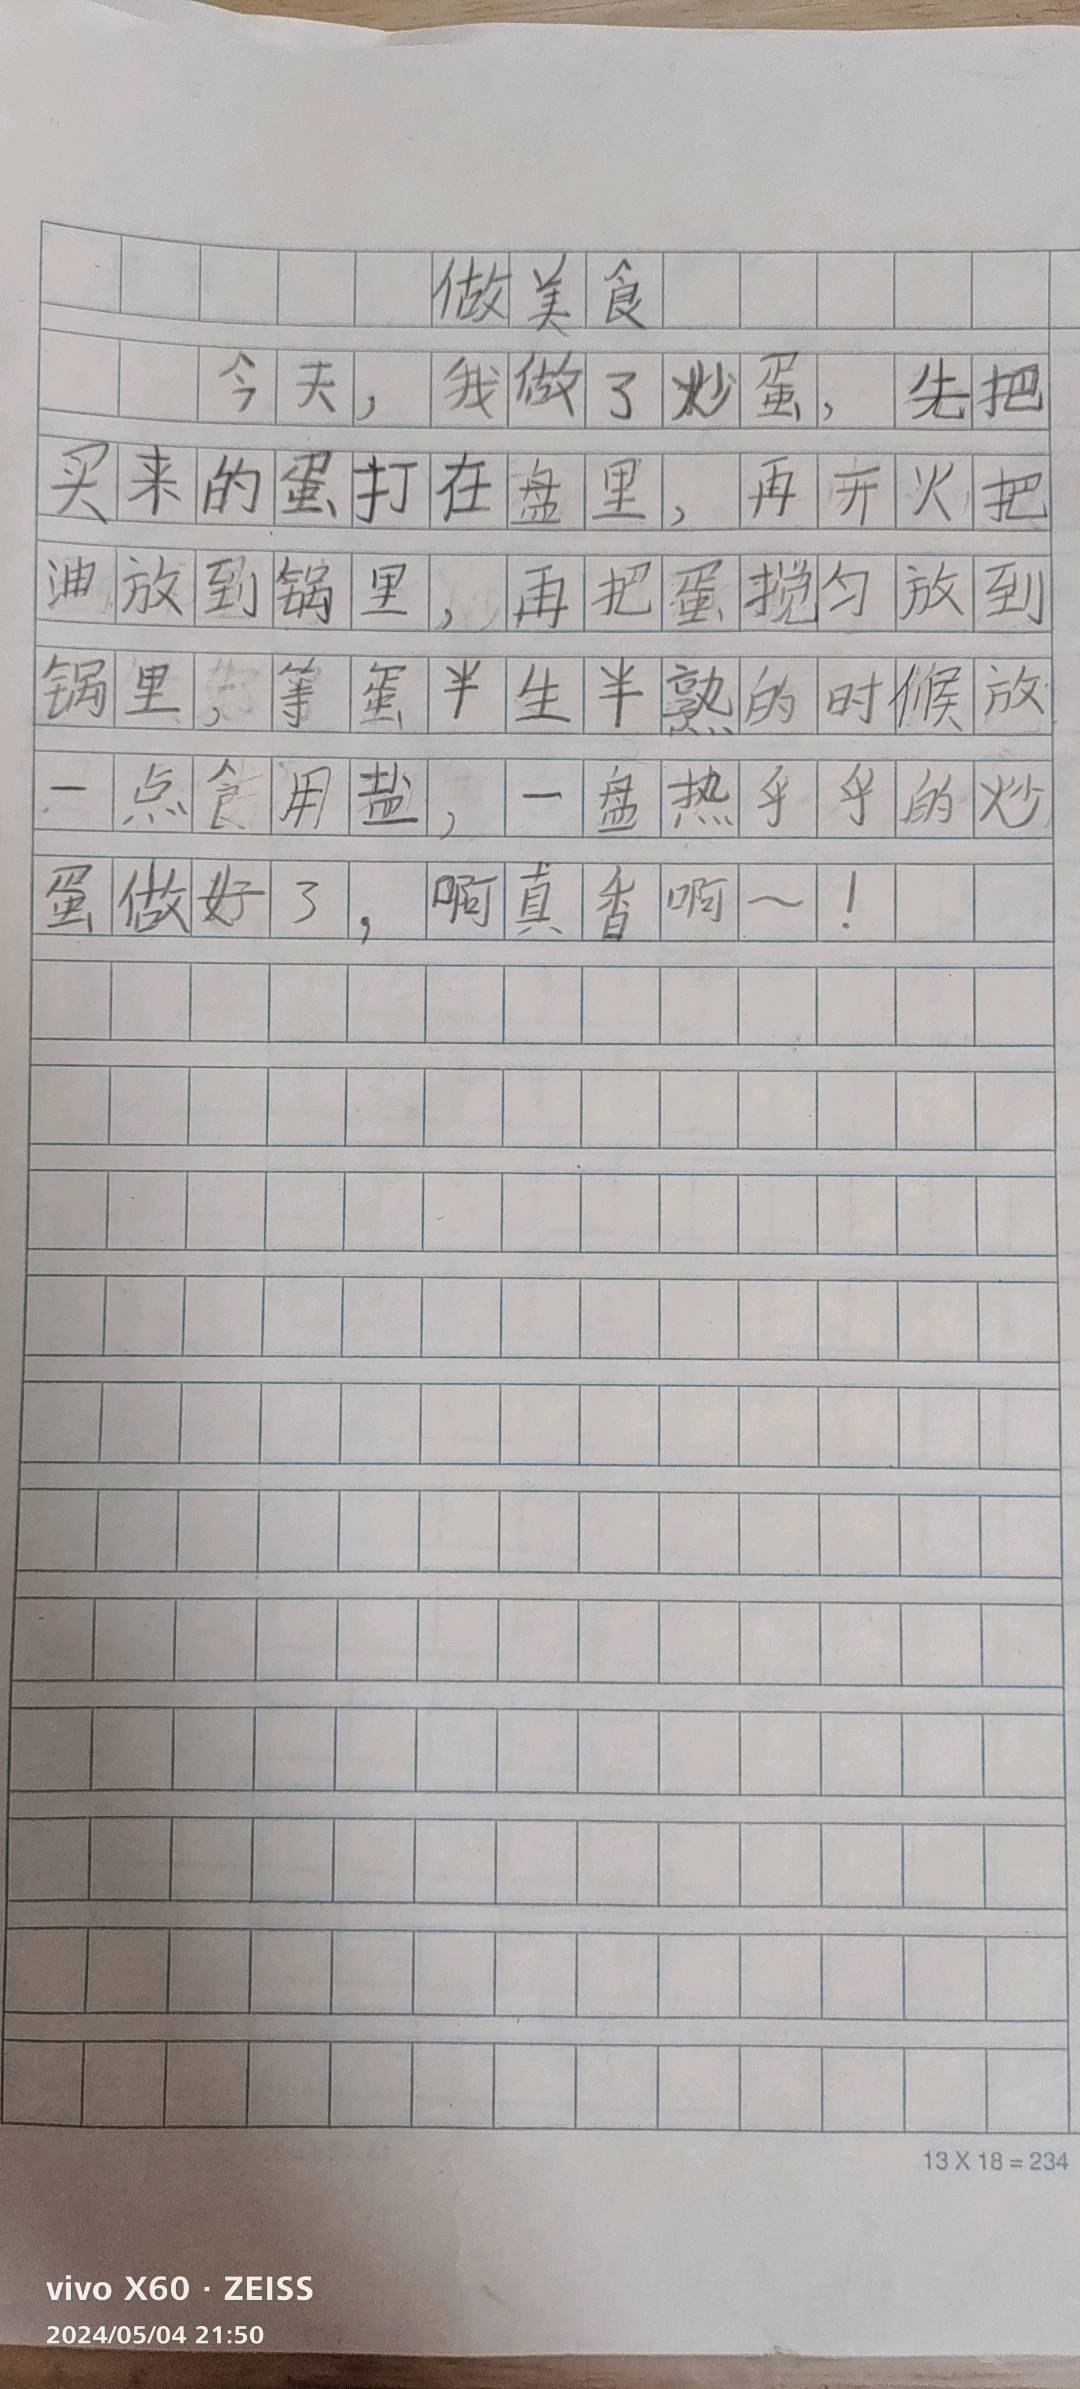 做美食
今天，我做了炒蛋，先把
买来的蛋打在盘里，再开火把
油放到锅里，再把蛋搅匀放到
锅里，等蛋半生半熟的时候放
一点食用盐，一盘热乎乎的炒
蛋做好了，啊真香啊～！
13 X 18 = 234
vivo X60 · ZEISS
2024/05/04 21:50